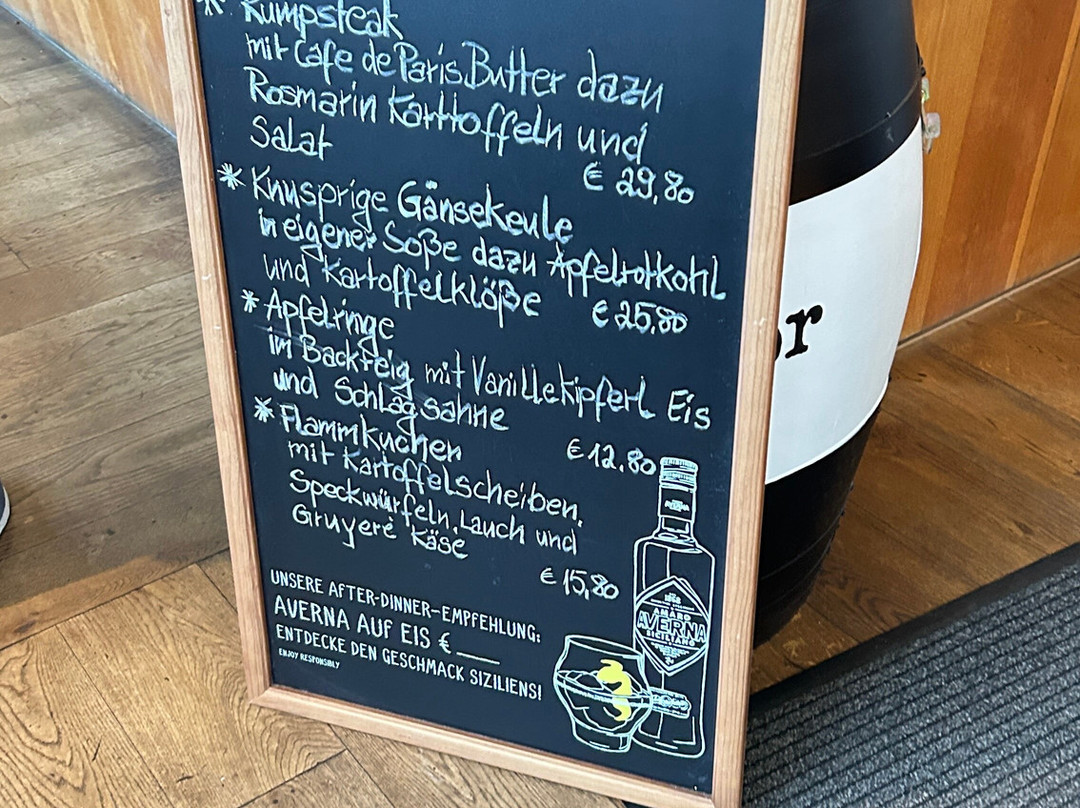 * Rumpsteak
mit Cafe de Paris Butter dazu
Rosmarin Karttoffeln und
Salat
€ 29,80
* Knusprige Gänsekeule
in eigener Soße dazu Apfelrotkohl
und Kartoffelklöße € 25,80
* Apfelringe
im Backteig mit Vanillekipferl Eis
und Schlagsahne
€ 12.80
* Flammkuchen
mit Kartoffelscheiben,
Speckwürfeln, Lauch und
Gruyere Käse
€ 15,80
UNSERE AFTER-DINNER-EMPFEHLUNG:
AVERNA AUF EIS € ___
ENTDECKE DEN GESCHMACK SIZILIENS!
ENJOY RESPONSIBLY
AMARO
AVERNA
SICILIANO
or